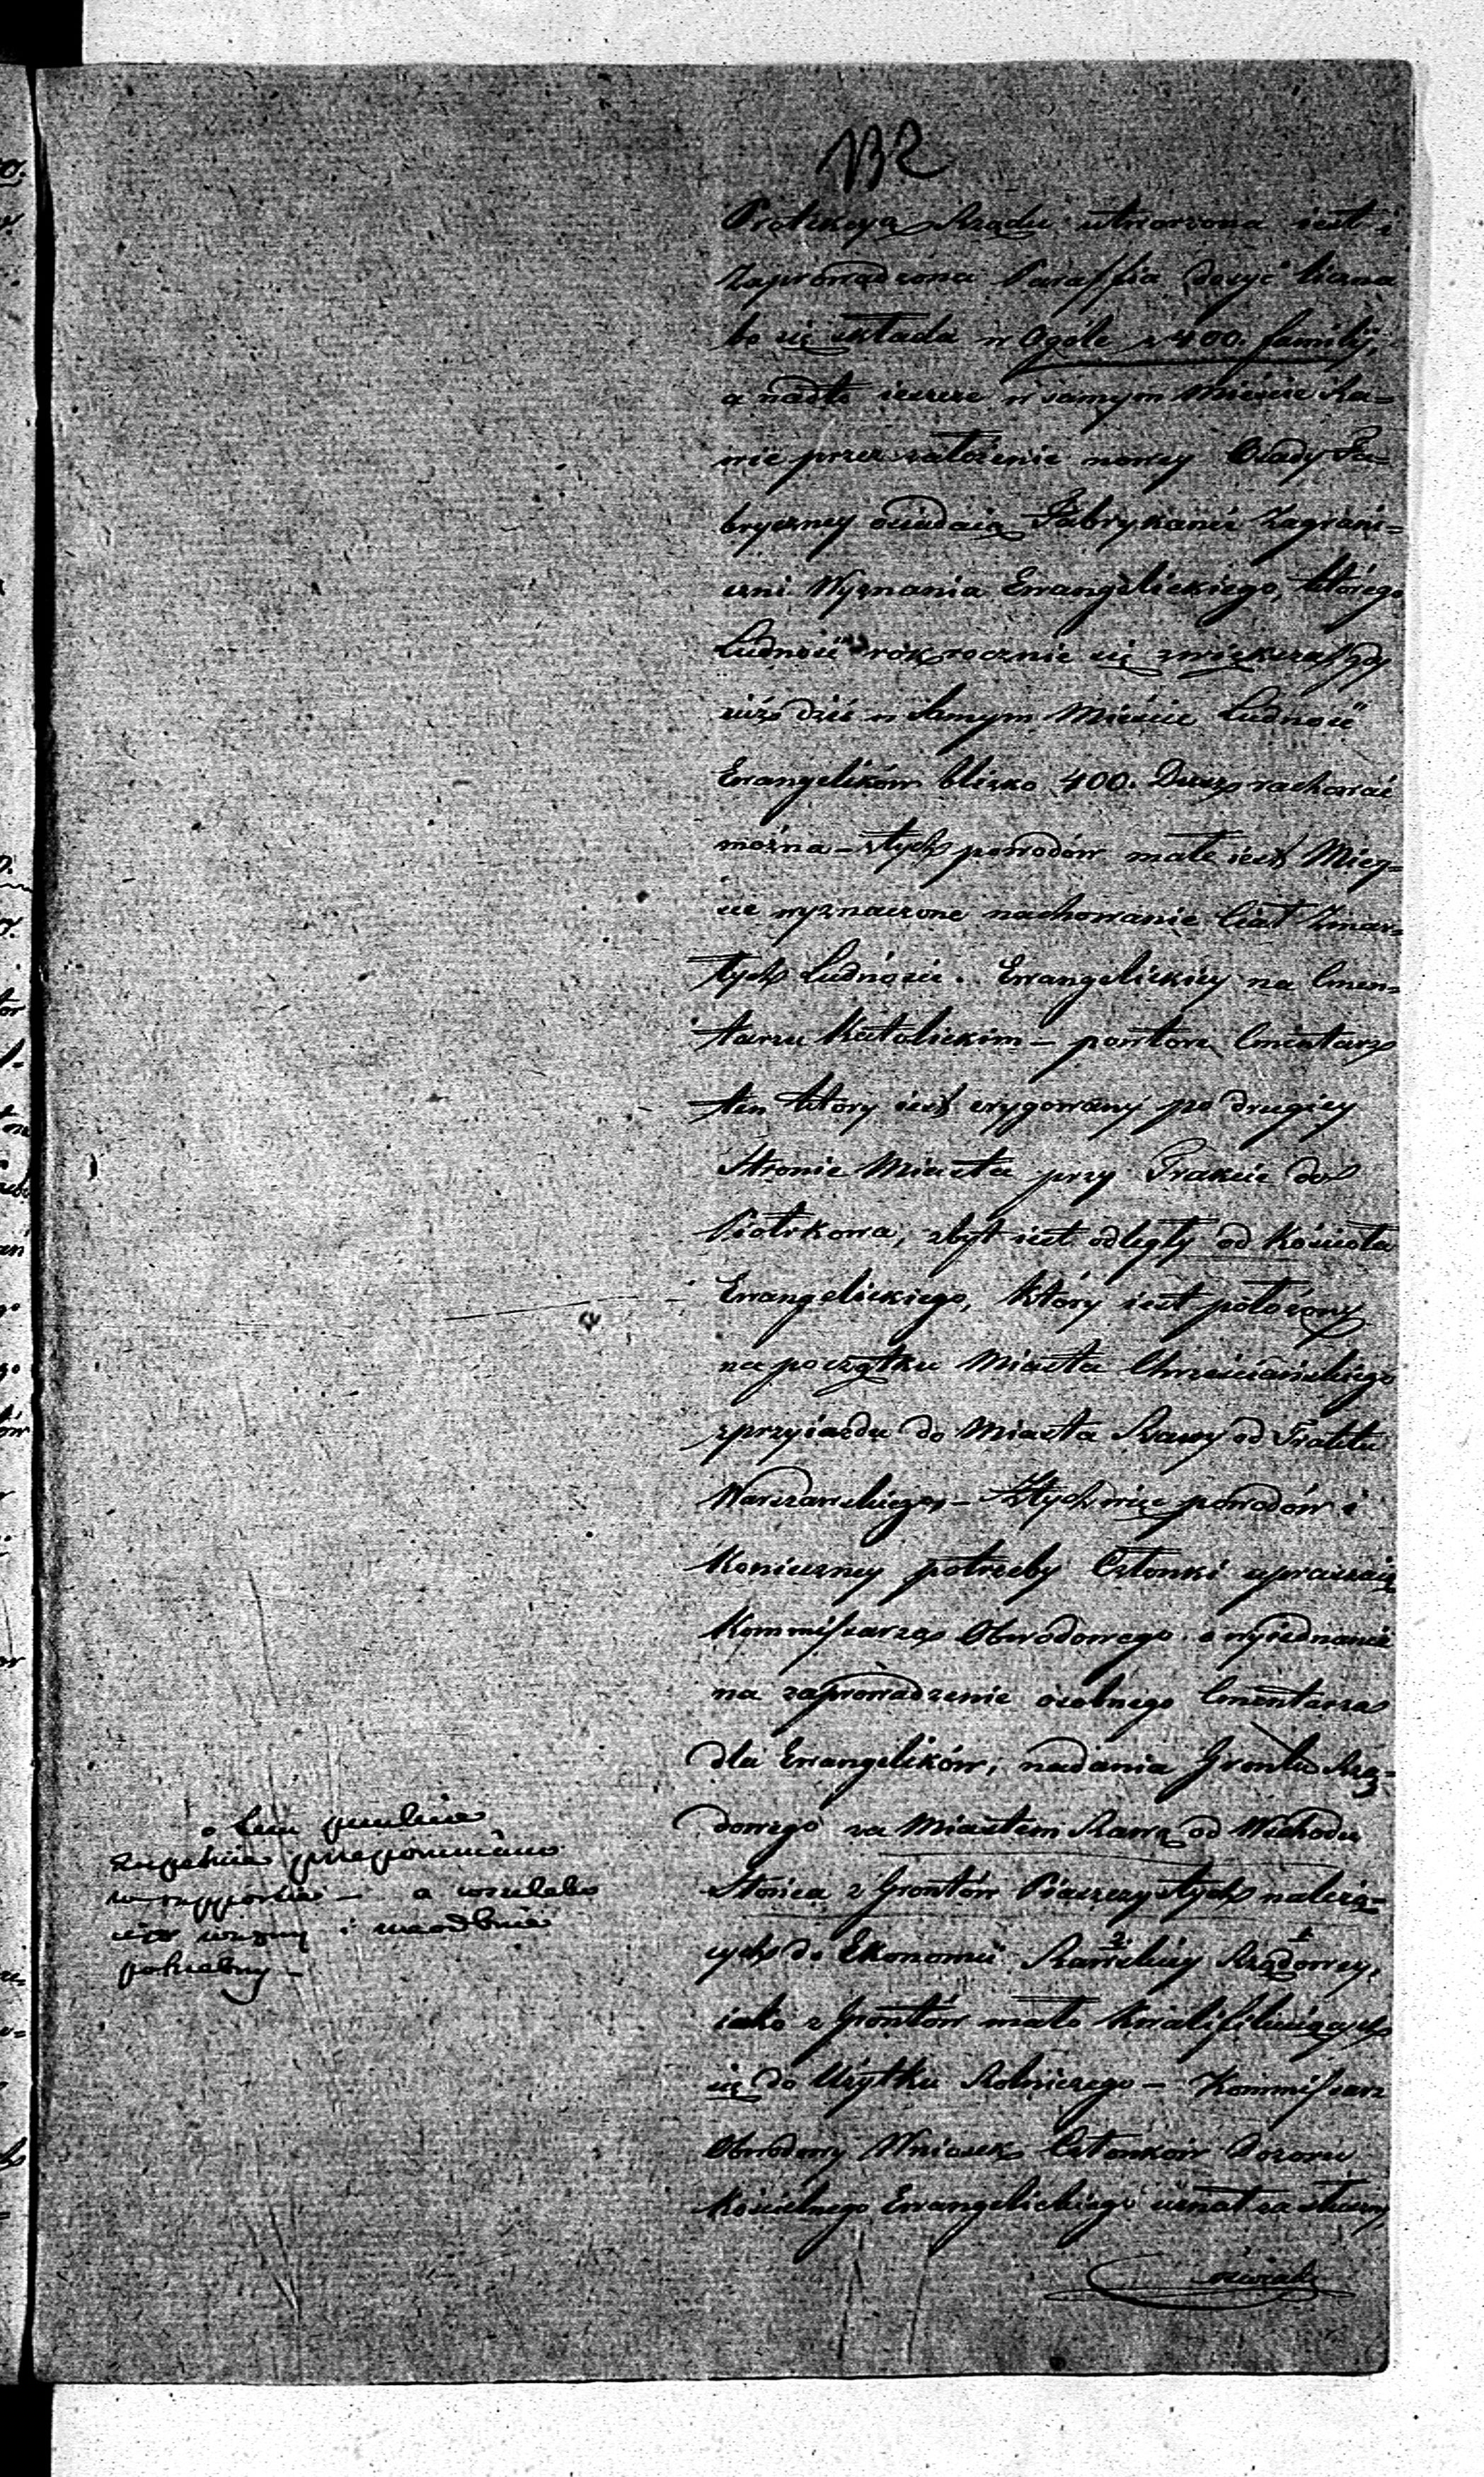 132
Protekcyą Rządu utworzona iest i
Zaprowadzona Paraffia dosyć liczna
bo się składa w Ogóle z 400. familij,
a nadto ieszcze w samym Mieście Ra=
wie przez założenie nowey Osady Fa=
bryczney osiadaią Fabrykanci Zagrani=
czni Wyznania Ewangelickiego, którego
Ludność rok rocznie się zwiększa, gdy
iuż dziś w Samym Mieście Ludność
Ewangelików blisko 400. Dusz rachować
można – z tych powodów małe iest Miey=
sce wyznaczone na chowanie Ciał Zmar=
łych Ludności Ewangelickiey na Cmen=
tarzu Katolickim – powtóre Cmentarz
ten który iest erygowany po drugiey
Stronie Miasta przy Trakcie do
Piotrkowa, zbyt iest odległy od Kościoła
Ewangelickiego, który iest położony
na początku Miasta Chrześciańskiego
z przyiazdu do Miasta Rawy od Traktu
Warszawskiego – Z tych więc powodów i
Konieczney potrzeby Członki upraszaią
Kommissarza Obwodowego o wyiednanie
na zaprowadzenie osobnego Cmentarza
dla Ewangelików, nadania Gruntu Rzą=
dowego za Miastem Rawą od Wschodu
Słońca z Gruntów Piaszczystych należą=
cych do Ekonomii Rawskiéy Rządowey,
iako z Gruntów mało Kwalifikuiących
się do Użytku Rolniczego – Kommissarz
Obwodowy Wniosek Członków Dozoru
Kościelnego Ewangelickiego uznał za słuszny,
o tem punkcie
zupełnie przepomniano
w rapporcie – a wszelako
iest ważny i nieodbicie
potrzebny –